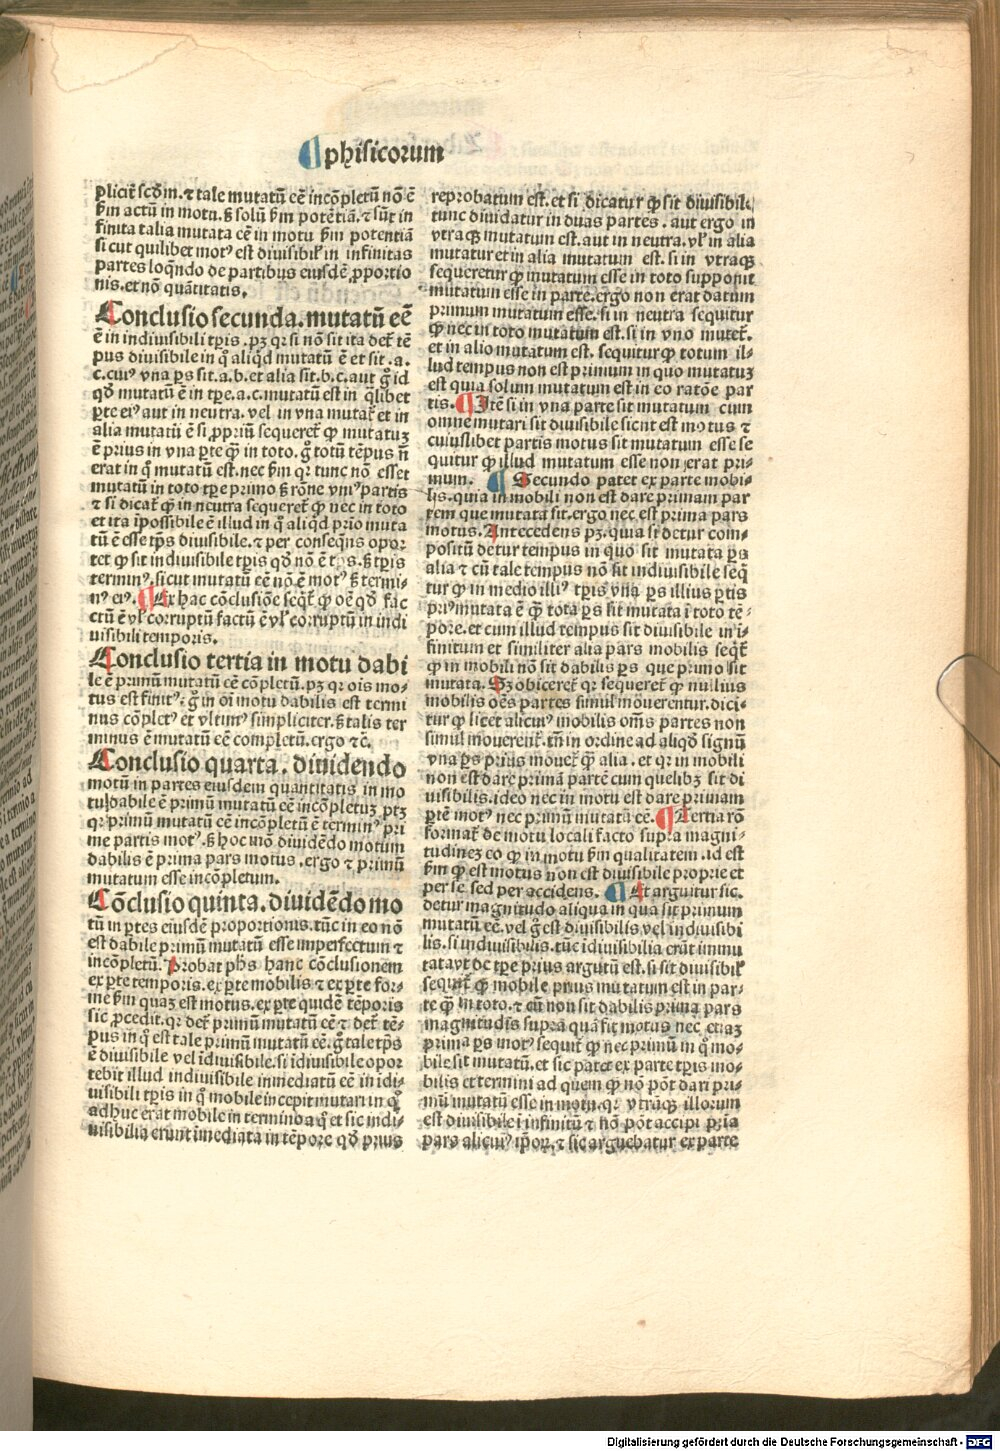 phisicorum
plicit̃ scðm. ⁊ tale mutatũ eẽ incõpletũ nõ ẽ
ẜm actũ in motu. ß solũ ẜm potẽtiã. ⁊ sũt in
finita talia mutata eẽ in motu ẜm potentiã
si cut quilibet mot⁹ est diuisibil' in infinitas
partes loq̃ndo de partibus eiusdẽ ꝓportio
nis. et nõ quãtitatis.
Conclusio secunda. mutatũ eẽ
ẽ in indiuisibili tꝑis. pꝫ qꝛ si nõ sit ita det̃ tẽ
pus diuisibile in q̊ aliqd mutatũ ẽ et sit .a.
c. cui⁹ vna ps sit .a.b. et alia sit .b.c. aut g̊ id
qð mutatũ ẽ in tꝑe .a.c. mutatũ est in q̃libet
ꝑte ei⁹ aut in neutra. vel in vna mutat̃ et in
alia mutatũ ẽ si ꝓpriũ sequeret̃ ꝙ mutatuꝫ
ẽ prius in vna ꝑte ꝙ̃ in toto. g̊ totũ tẽpus ñ
erat in q̊ mutatũ est. nec ẜm qꝛ tunc nõ esset
mutatũ in toto tꝑe primo ß rõne vni⁹ partis
⁊ si dicat̃ ꝙ in neutra sequeret̃ ꝙ nec in toto
et ita ĩpossibile ẽ illud in q̊ aliqd prio muta
tũ ẽ esse tꝑs diuisibile. ⁊ per conseq̃ns opor
tet ꝙ sit indiuisibile tꝑis qð nõ ẽ tꝑs. ß tꝑis
termin⁹. sicut mutatũ eẽ nõ ẽ mot⁹ ß termi-
n⁹ ei⁹. ¶ Ex hac cõclusiõe seq̃t̃ ꝙ oẽ qð fac
ctũ ẽ vl' corruptũ factũ ẽ vl' corruptũ in indi
uisibili temporis.
Conclusio tertia in motu dabi
le ẽ primũ mutatũ eẽ cõpletũ. pꝫ qꝛ ois mo-
tus est finit⁹. g̊ in oĩ motu dabilis est termi
nus cõplet⁹ et vltim⁹ simpliciter. ß talis ter
minus ẽ mutatũ eẽ completũ. ergo ⁊c̃.
Conclusio quarta. diuidendo
motũ in partes eiusdem quantitatis in mo
tu dabile ẽ primũ mutatũ eẽ incõpletuꝫ ptꝫ
qꝛ primũ mutatũ eẽ incõpletũ ẽ termin⁹ pri
me partis mot⁹. ß hoc mõ diuidẽdo motum
dabilis ẽ prima pars motus. ergo ⁊ primũ
mutatum esse incõpletum.
Cõclusio quinta. diuidẽdo mo
tũ in ꝑtes eiusdẽ proportionis. tũc in eo nõ
est dabile primũ mutatũ esse imperfectum ⁊
incõpletũ. Probat ph̃s hanc cõclusionem
ex ꝑte temporis. ex ꝑte mobilis ⁊ ex ꝑte for-
me ẜm quaꝫ est motus. ex ꝑte quidẽ tẽporis
sic ꝓcedit. qꝛ det̃ primũ mutatũ eẽ ⁊ det̃ tẽ-
pus in q̊ est tale primũ mutatũ eẽ. g̊ tale tꝑs
ẽ diuisibile vel ĩdiuisibile. si ĩdiuisibile opor
tebit illud indiuisibile inmediatũ eẽ in idi-
uisibili tꝑis in q̊ mobile incepit mutari in q̊
adhuc erat mobile in termino a q̊ et sic indi-
uisibilia erunt ĩmediata in tẽpore qð prius
reprobatum est. et si dicatur ꝙ sit diuisibile
tunc diuidatur in duas partes. aut ergo in
vtraqꝫ mutatum est. aut in neutra. vl' in alia
mutatur et in alia mutatum est. si in vtraqꝫ
sequeretur ꝙ mutatum esse in toto supponit
mutatum esse in parte. ergo non erat datum
primum mutatum esse. si in neutra sequitur
ꝙ nec in toto mutatum est. si in vno mutet̃.
et in alio mutatum est. sequitur ꝙ totum il-
lud tempus non est primum in quo mutatuꝫ
est quia solum mutatum est in eo ratõe par
tis. ¶ Itẽ si in vna parte sit mutatum cum
omne mutari sit diuisibile sicut est motus ⁊
cuiuslibet partis motus sit mutatum esse se
quitur ꝙ illud mutatum esse non erat pri-
mum. ¶ Secundo patet ex parte mobi-
lis. quia in mobili non est dare primam par
tem que mutata sit. ergo nec est prima pars
motus. Antecedens pꝫ. quia si detur com-
positũ detur tempus in quo sit mutata ps
alia ⁊ cũ tale tempus nõ sit indiuisibile seq̃
tur ꝙ in medio illi⁹ tꝑis vna ps illius ꝑtis
pri⁹ mutata ẽ ꝙ̃ tota ps sit mutata ĩ toto tẽ-
pore. et cum illud tempus sit diuisibile in i-
finitum et similiter alia pars mobilis seq̃t̃
ꝙ in mobili nõ sit dabilis ps que primo sit
mutata. Sꝫ obiceret̃ qꝛ sequeret̃ ꝙ nullius
mobilis oẽs partes simul mouerentur. dici-
tur ꝙ licet alicui⁹ mobilis om̃s partes non
simul mouerent̃. tñ in ordine ad aliqð signũ
vna ps prius mouet̃ ꝙ̃ alia. et qꝛ in mobili
non est dare primã partẽ cum quelibꝫ sit di
uisibilis. ideo nec in motu est dare primam
ꝑtẽ mot⁹ nec primũ mutatũ eẽ. ¶ Tertia rõ
format̃ de motu locali facto supra magni-
tudinez eo ꝙ in motu ẜm qualitatem. id est
ẜm ꝙ est motus non est diuisibile proprie et
per se. sed per accidens. ¶ Et arguitur sic.
detur magnitudo aliqua in qua sit primum
mutatũ eẽ. vel g̊ est diuisibilis vel indiuisibi
lis. si indiuisibilis. tũc ĩdiuisibilia erãt immu
tata vt de tꝑe prius argutũ est. si sit diuisibil'
sequit̃ ꝙ mobile prius mutatum est in par-
te ꝙ̃ in toto. ⁊ cũ non sit dabilis prima pars
magnitudĩs supra quã fit motus nec etiaꝫ
prima ps mot⁹ sequit̃ ꝙ nec primũ in q̊ mo-
bile sit mutatũ. et sic patet ex parte tꝑis mo-
bilis et termini ad quem ꝙ nõ põt dari pri-
mũ mutatũ esse in motu. qꝛ vtraqꝫ illorum
est diuisibile ĩ infinitũ ⁊ nõ põt accipi
pars alicui⁹ ip̃oꝝ. ⁊ sic arguebatur ex parte
Digitalisierung gefördert durch die Deutsche Forschungsgemeinschaft - DFG